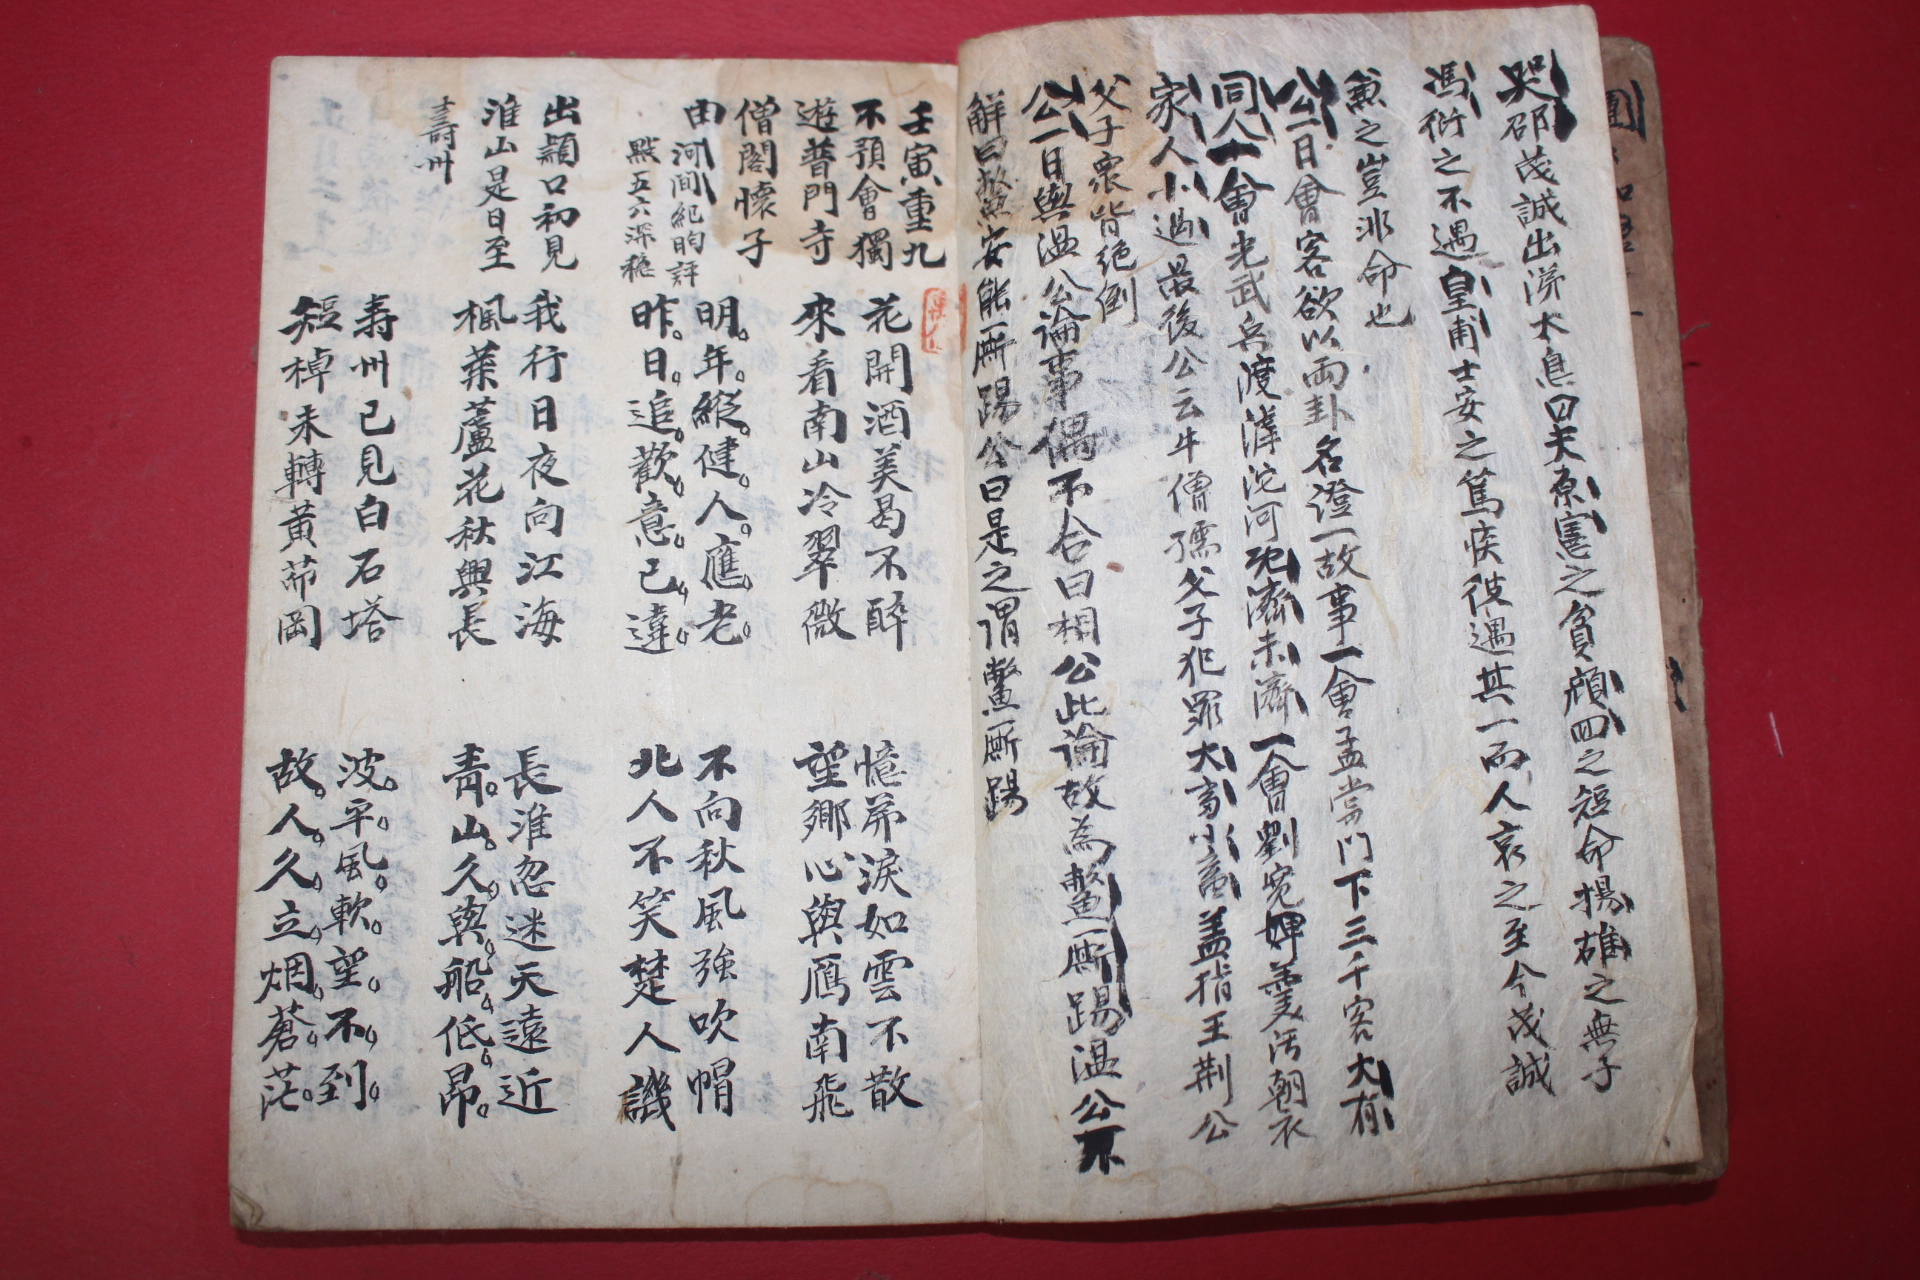 哭邵茂誠出涕太息曰夫原憲之貧顔回之短命揚雄之無子
馮衍之不遇皇甫士安之篤疾彼遇其一而人哀之至今茂誠
兼之豈非命也
公一日會客欲以兩卦名證一故事一會孟嘗門下三千客大有
同人一會光武兵渡滹沱河旣濟未濟一會劉寬婢羹汚朝衣
家人小過最後公云牛僧孺父子犯罪大畜小畜盖指王荆公
父子衆皆絶倒
公一日與溫公論事偶不合曰相公此論故為鱉厮踢溫公不
解曰鱉安能厮踢公曰是之謂鱉厮踢
壬寅重九
不預會獨
遊普門寺
僧閣懷子
由河間紀昀評
點五六深穩
花開酒美曷不醉
來看南山冷翠微
憶弟淚如雲不散
望鄉心與鴈南飛
明年縱健人應老
昨日追歡意已違
不向秋風強吹帽
北人不笑楚人譏
出頴口初見
淮山是日至
壽州
我行日夜向江海
楓葉蘆花秋興長
長淮忽迷天遠近
青山久與船低昂
寿州已見白石塔
短棹未轉黃茆岡
波平風軟望不到
故人久立烟蒼茫